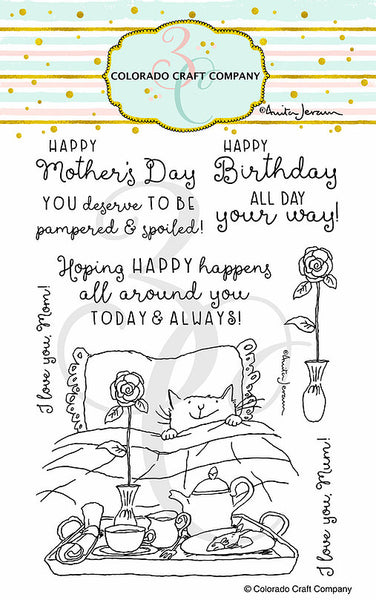 3C
COLORADO CRAFT COMPANY
©Anita Jeram
HAPPY
Mother's Day
YOU deserve TO BE
pampered & spoiled!
HAPPY
Birthday
ALL DAY
your way!
Hoping HAPPY happens
all around you
TODAY & ALWAYS!
I love you, Mom!
©Anita Jeram
I love you, Mum!
© Colorado Craft Company